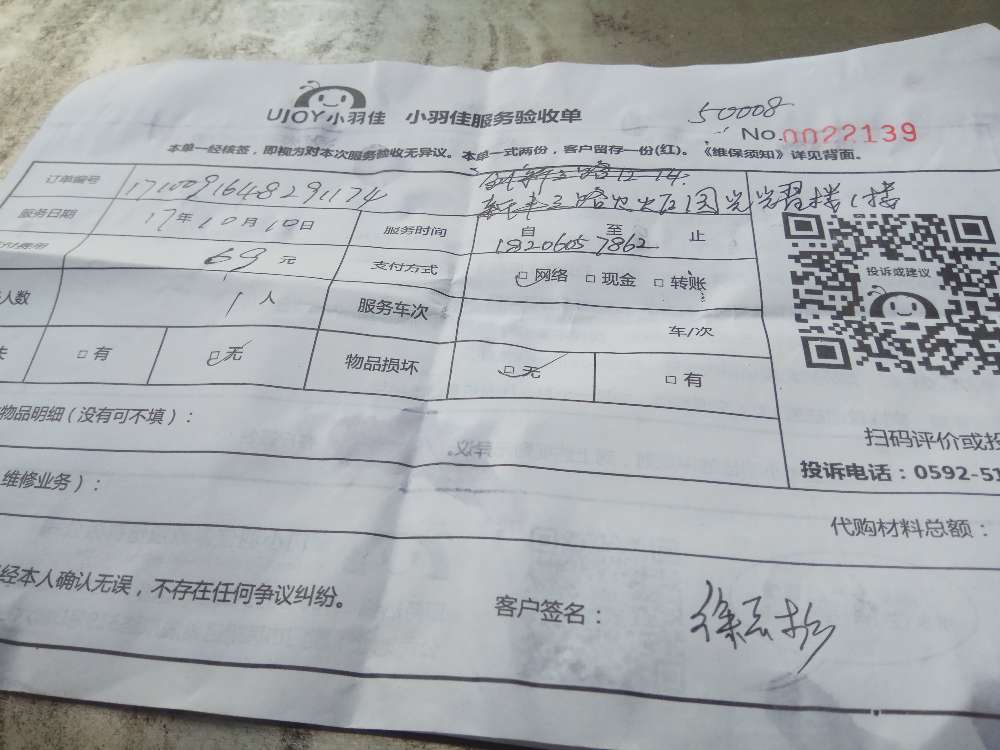 UJOY小羽佳 小羽佳服务验收单
50008
No.0022139
本单一经核签，即视为对本次服务验收无异议。本单一式两份，客户留存一份(红)。《维保须知》详见背面。
订单编号 1710091648291174
服务日期 17年10月10日 服务时间 自 至 止
18206057862
69元 支付方式 □网络 □现金 □转账
人数 1人 服务车次 车/次
□有 □无 物品损坏 □无 □有
投诉或建议
物品明细（没有可不填）：
扫码评价或投
投诉电话：0592-51
维修业务）：
代购材料总额：
经本人确认无误，不存在任何争议纠纷。
客户签名：